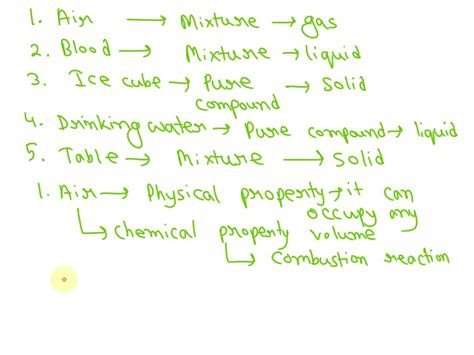 1. Air → Mixture → gas
2. Blood → Mixture → liquid
3. Ice cube → Pure compound → Solid
4. Drinking water → Pure compound → liquid
5. Table → Mixture → Solid
1. Air → Physical property → it can occupy any volume
↳ Chemical property
↳ Combustion reaction